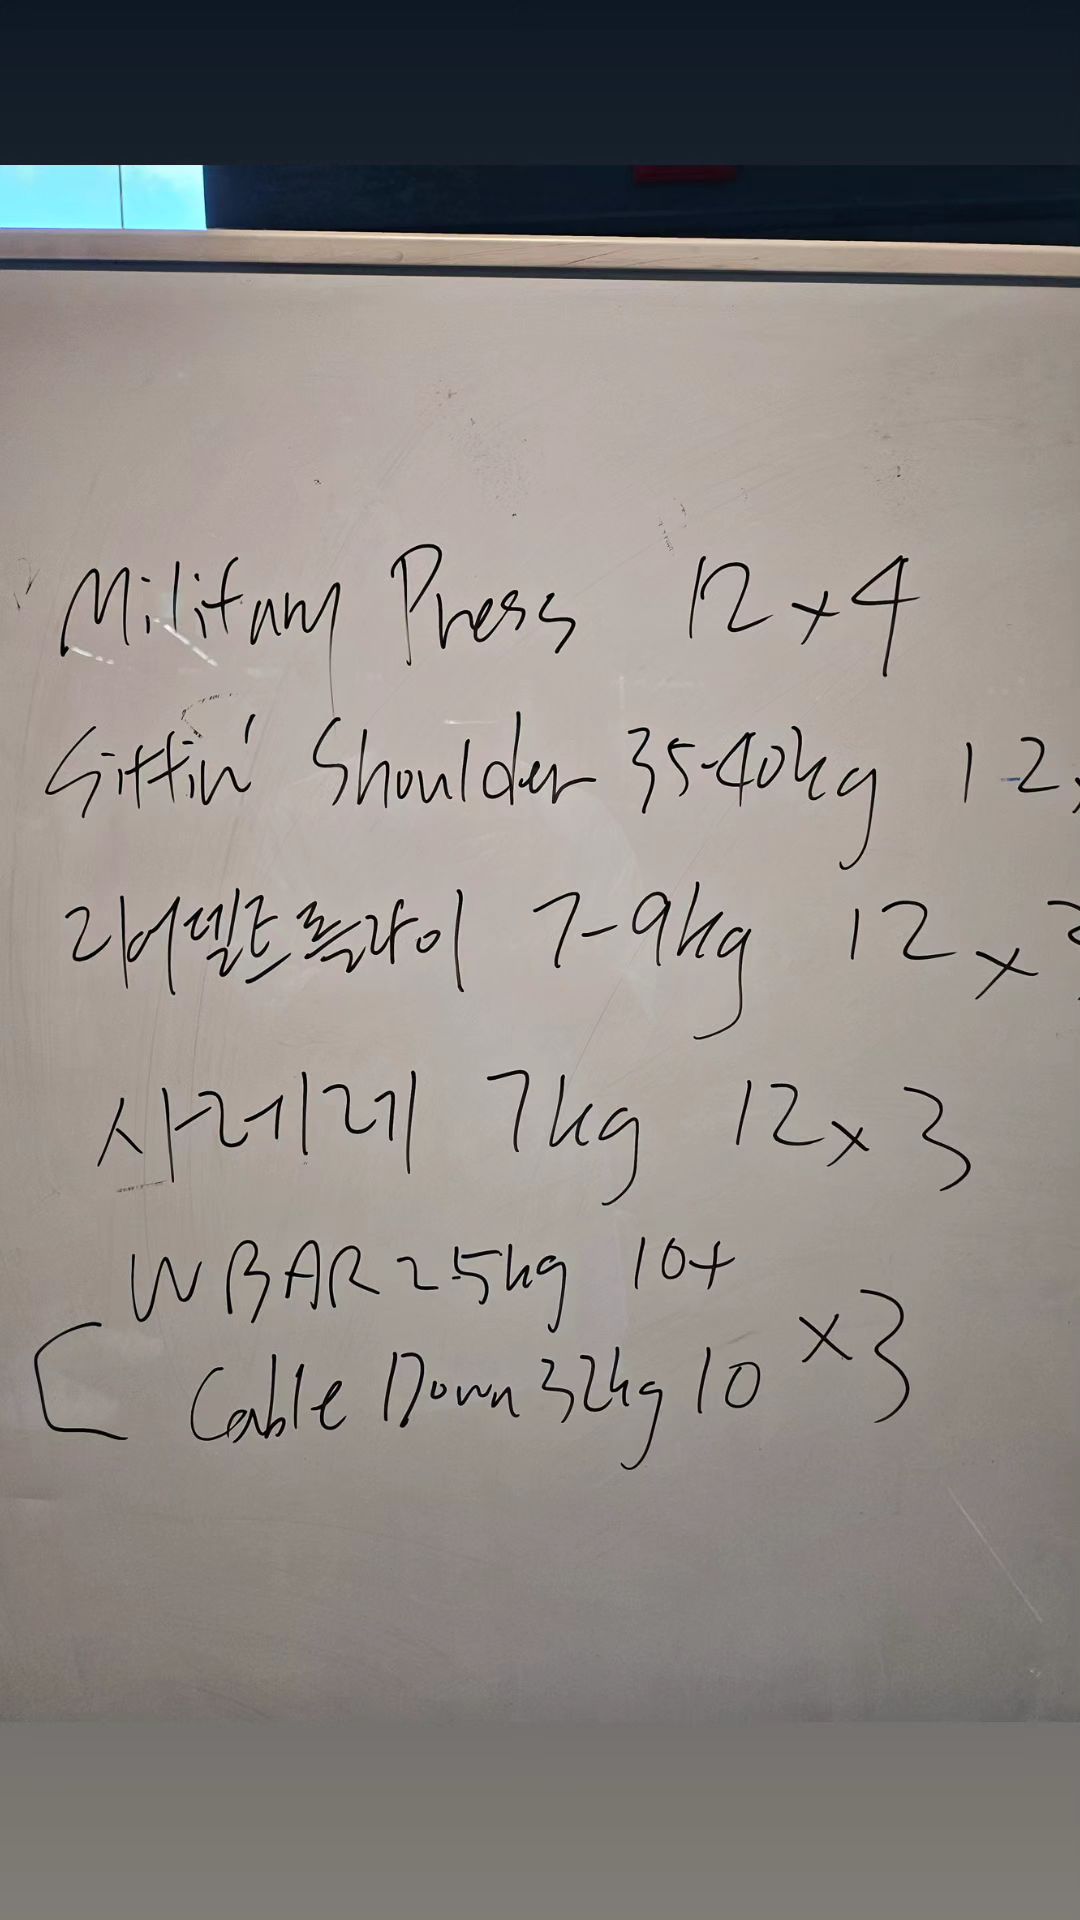 Military Press 12x4
Sittin' Shoulder 35-40kg 12x
리어델트플라이 7-9kg 12x3
사레레 7kg 12x3
W BAR 25kg 10+
Cable Down 32kg 10 x3